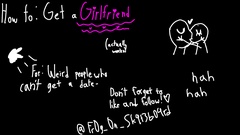 How to: Get a Girlfriend
(actually works)
For: Weird people who
can't get a date-
nah
nah
Don't forget to
like and follow!